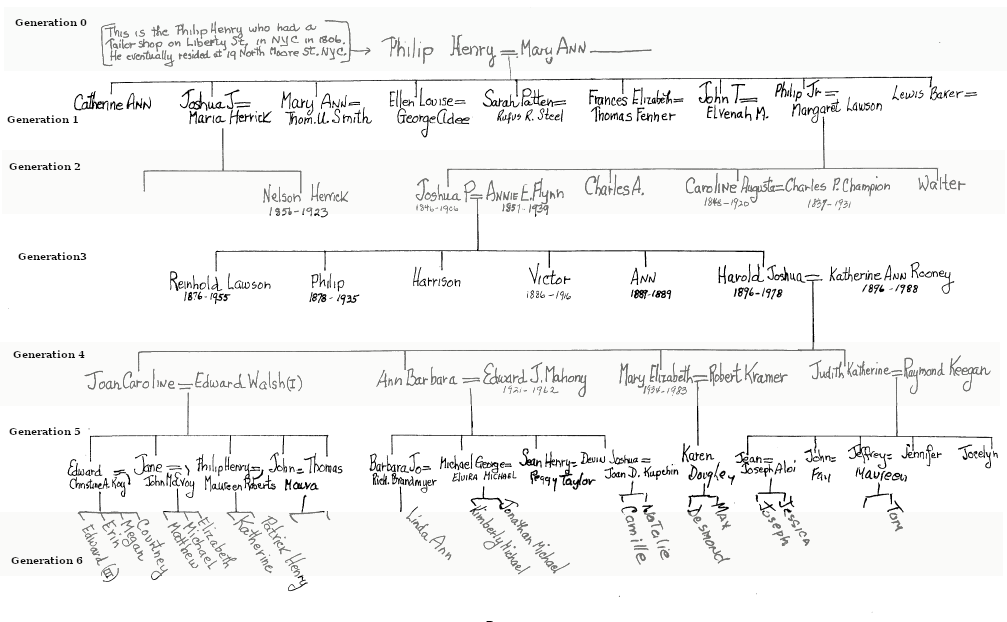 Generation 0
This is the Philip Henry who had a
Tailor shop on Liberty St, in NYC in 1806.
He eventually resided at 19 North Moore St. NYC.
Philip Henry = Mary ANN
Generation 1
Catherine ANN
Joshua J=
Maria Herrick
Mary ANN=
Thom. U. Smith
Ellen Louise=
George Adee
Sarah Patten=
Rufus R. Steel
Frances Elizabeth=
Thomas Fenner
John T=
Elvenah M.
Philip Jr=
Margaret Lawson
Lewis Baker=
Generation 2
Nelson Herrick
1856-1923
Joshua P= ANNIE E. Flynn
1846-1906 1857-1939
Charles A.
Caroline Augusta=Charles P. Champion
1848-1920 1837-1931
Walter
Generation3
Reinhold Lawson
1876-1955
Philip
1878-1935
Harrison
Victor
1886-1916
ANN
1887-1889
Harold Joshua= Katherine ANN Rooney
1896-1978 1896-1988
Generation 4
Joan Caroline = Edward Walsh(I)
Ann Barbara = Edward J. Mahony
1921-1962
Mary Elizabeth= Robert Kramer
1934-1983
Judith Katherine= Raymond Keegan
Generation 5
Edward =
Christine A. Kay
Jane =
John McVoy
Philip Henry=
Maureen Roberts
John=
Moura
Thomas
Barbara Jo=
Rick. Brandmayer
Michael George=
ELVIRA MICHAEL
Sean Henry=
Peggy Taylor
Devin Joshua=
Joan D. Kupchin
Karen
Doughey
Jean=
Joseph Aloi
John=
Fay
Jeffrey=
Maureen
Jennifer
Jocelyn
Generation 6
Edward (III)
Erin
Megan
Courtney
Matthew
Michael
Elizabeth
Katherine
Patrick Henry
Linda Ann
Kimberly Michael
Jonathan Michael
Camille
Natalie
Desmond
Max
Joseph
Jessica
Tom